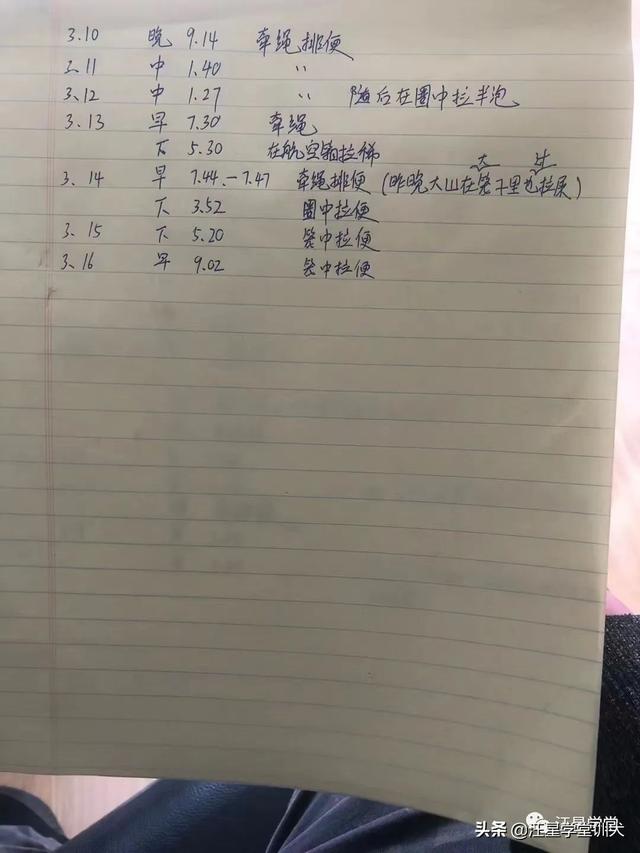 3.10 晚 9.14 牵绳排便
3.11 中 1.40 〃
3.12 中 1.27 〃 随后在圈中拉半泡
3.13 早 7.30 牵绳
下 5.30 在航空箱拉稀
3.14 早 7.44.-7.47 牵绳排便(昨晚大山在笼子里也拉尿)
下 3.52 圈中拉便
3.15 下 5.20 笼中拉便
3.16 早 9.02 笼中拉便
汪星学堂
头条 @汪星学堂训犬